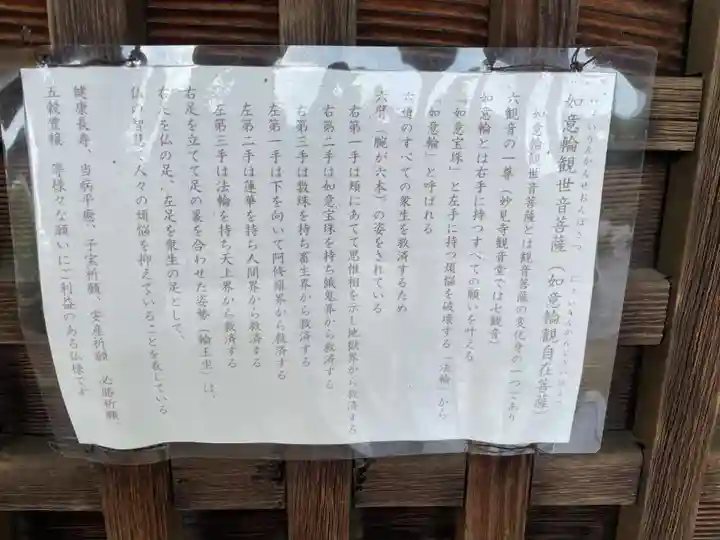 如意輪観世音菩薩（如意輪観自在菩薩）
如意輪観世音菩薩とは観音菩薩の変化身の一つであり
六観音の一尊（妙見寺観音堂では七観音）
如意輪とは右手に持つすべての願いを叶える
「如意宝珠」と左手に持つ煩悩を破壊する「法輪」から
「如意輪」と呼ばれる
六道のすべての衆生を救済するため
六臂（腕が六本）の姿をされている
右第一手は頬にあてて思惟相を示し地獄界から救済する
右第二手は如意宝珠を持ち餓鬼界から救済する
右第三手は数珠を持ち畜生界から救済する
左第一手は下を向いて阿修羅界から救済する
左第二手は蓮華を持ち人間界から救済する
左第三手は法輪を持ち天上界から救済する
右足を立てて足の裏を合わせた姿勢「輪王坐」は、
右足を仏の足、左足を衆生の足として、
仏の智慧で人々の煩悩を抑えていることを表している
健康長寿、当病平癒、子宝祈願、安産祈願、必勝祈願、
五穀豊穣 等様々な願いにご利益のある仏様です